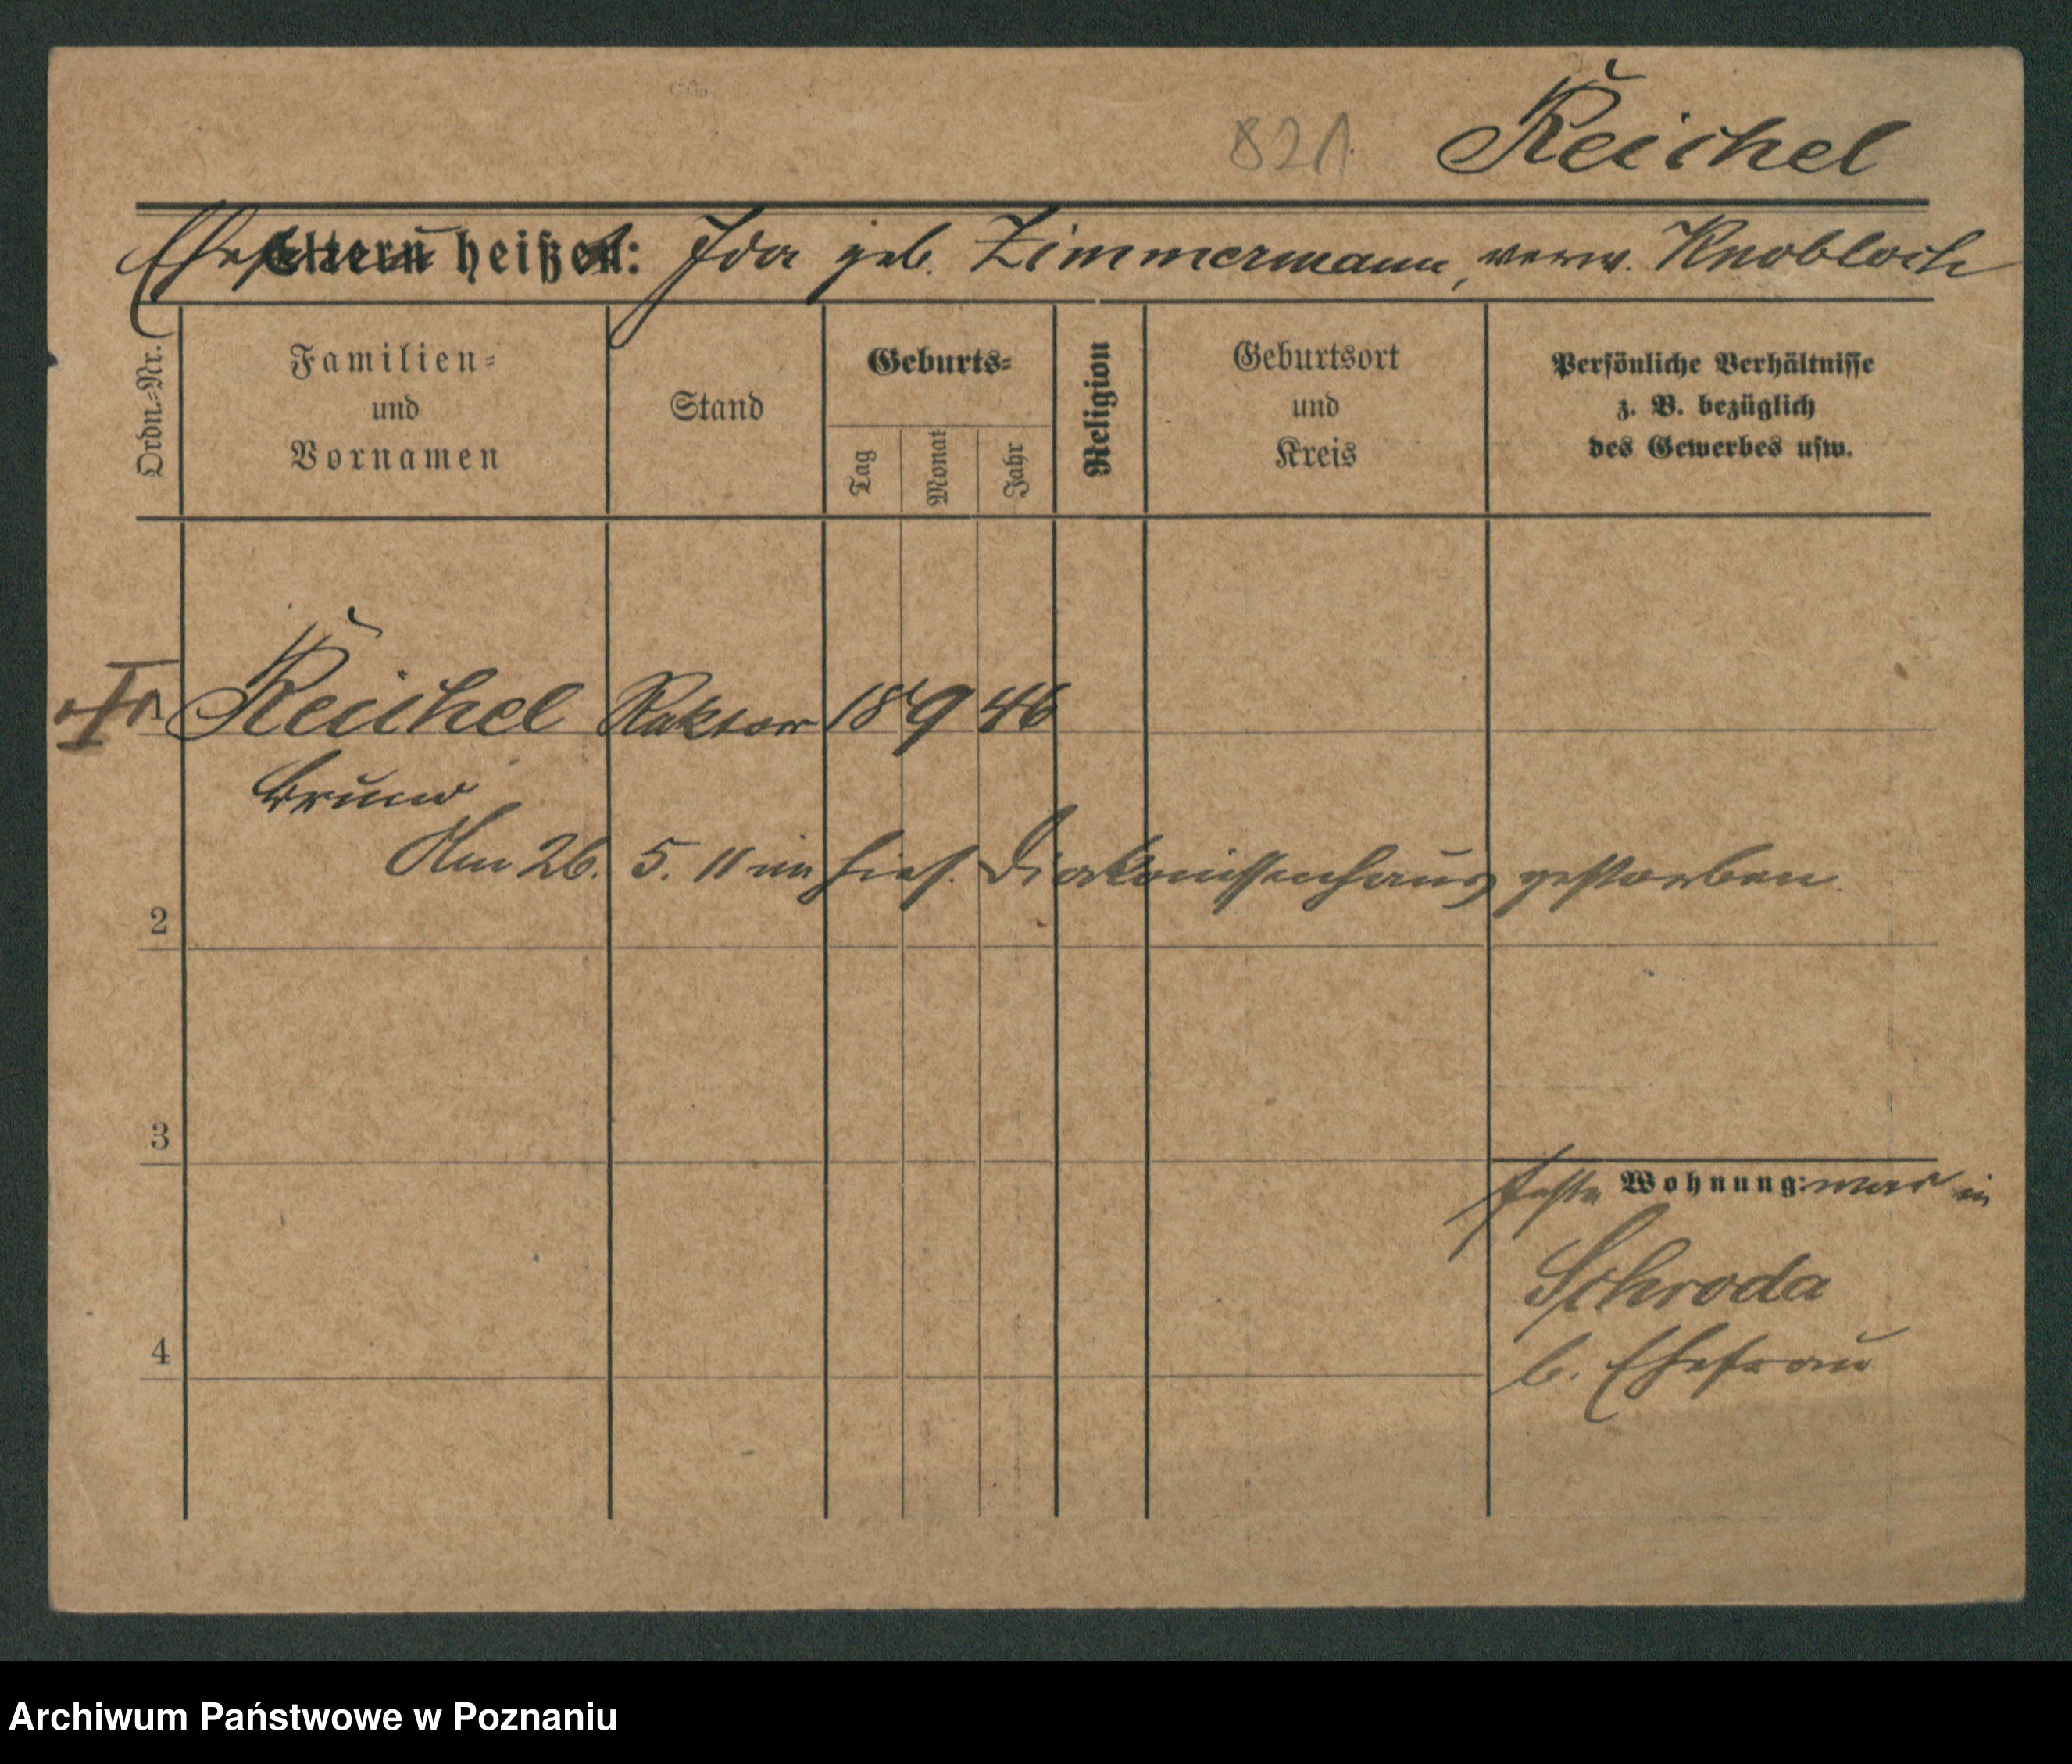 821. Reichel
Ehefrau heißt: Ida geb. Zimmermann, verw. Knobloch
Ordn.=Nr.
Familien=
und
Vornamen
Stand
Geburts=
Tag
Monat
Jahr
Religion
Geburtsort
und
Kreis
Persönliche Verhältnisse
z. B. bezüglich
des Gewerbes usw.
Reichel Rektor 18 9 46
Bruno
Am 26. 5. 11 im hies. Diakonissenhaus gestorben.
2
3
feste Wohnung: war in
Schroda
b. Ehefrau
4
Archiwum Państwowe w Poznaniu